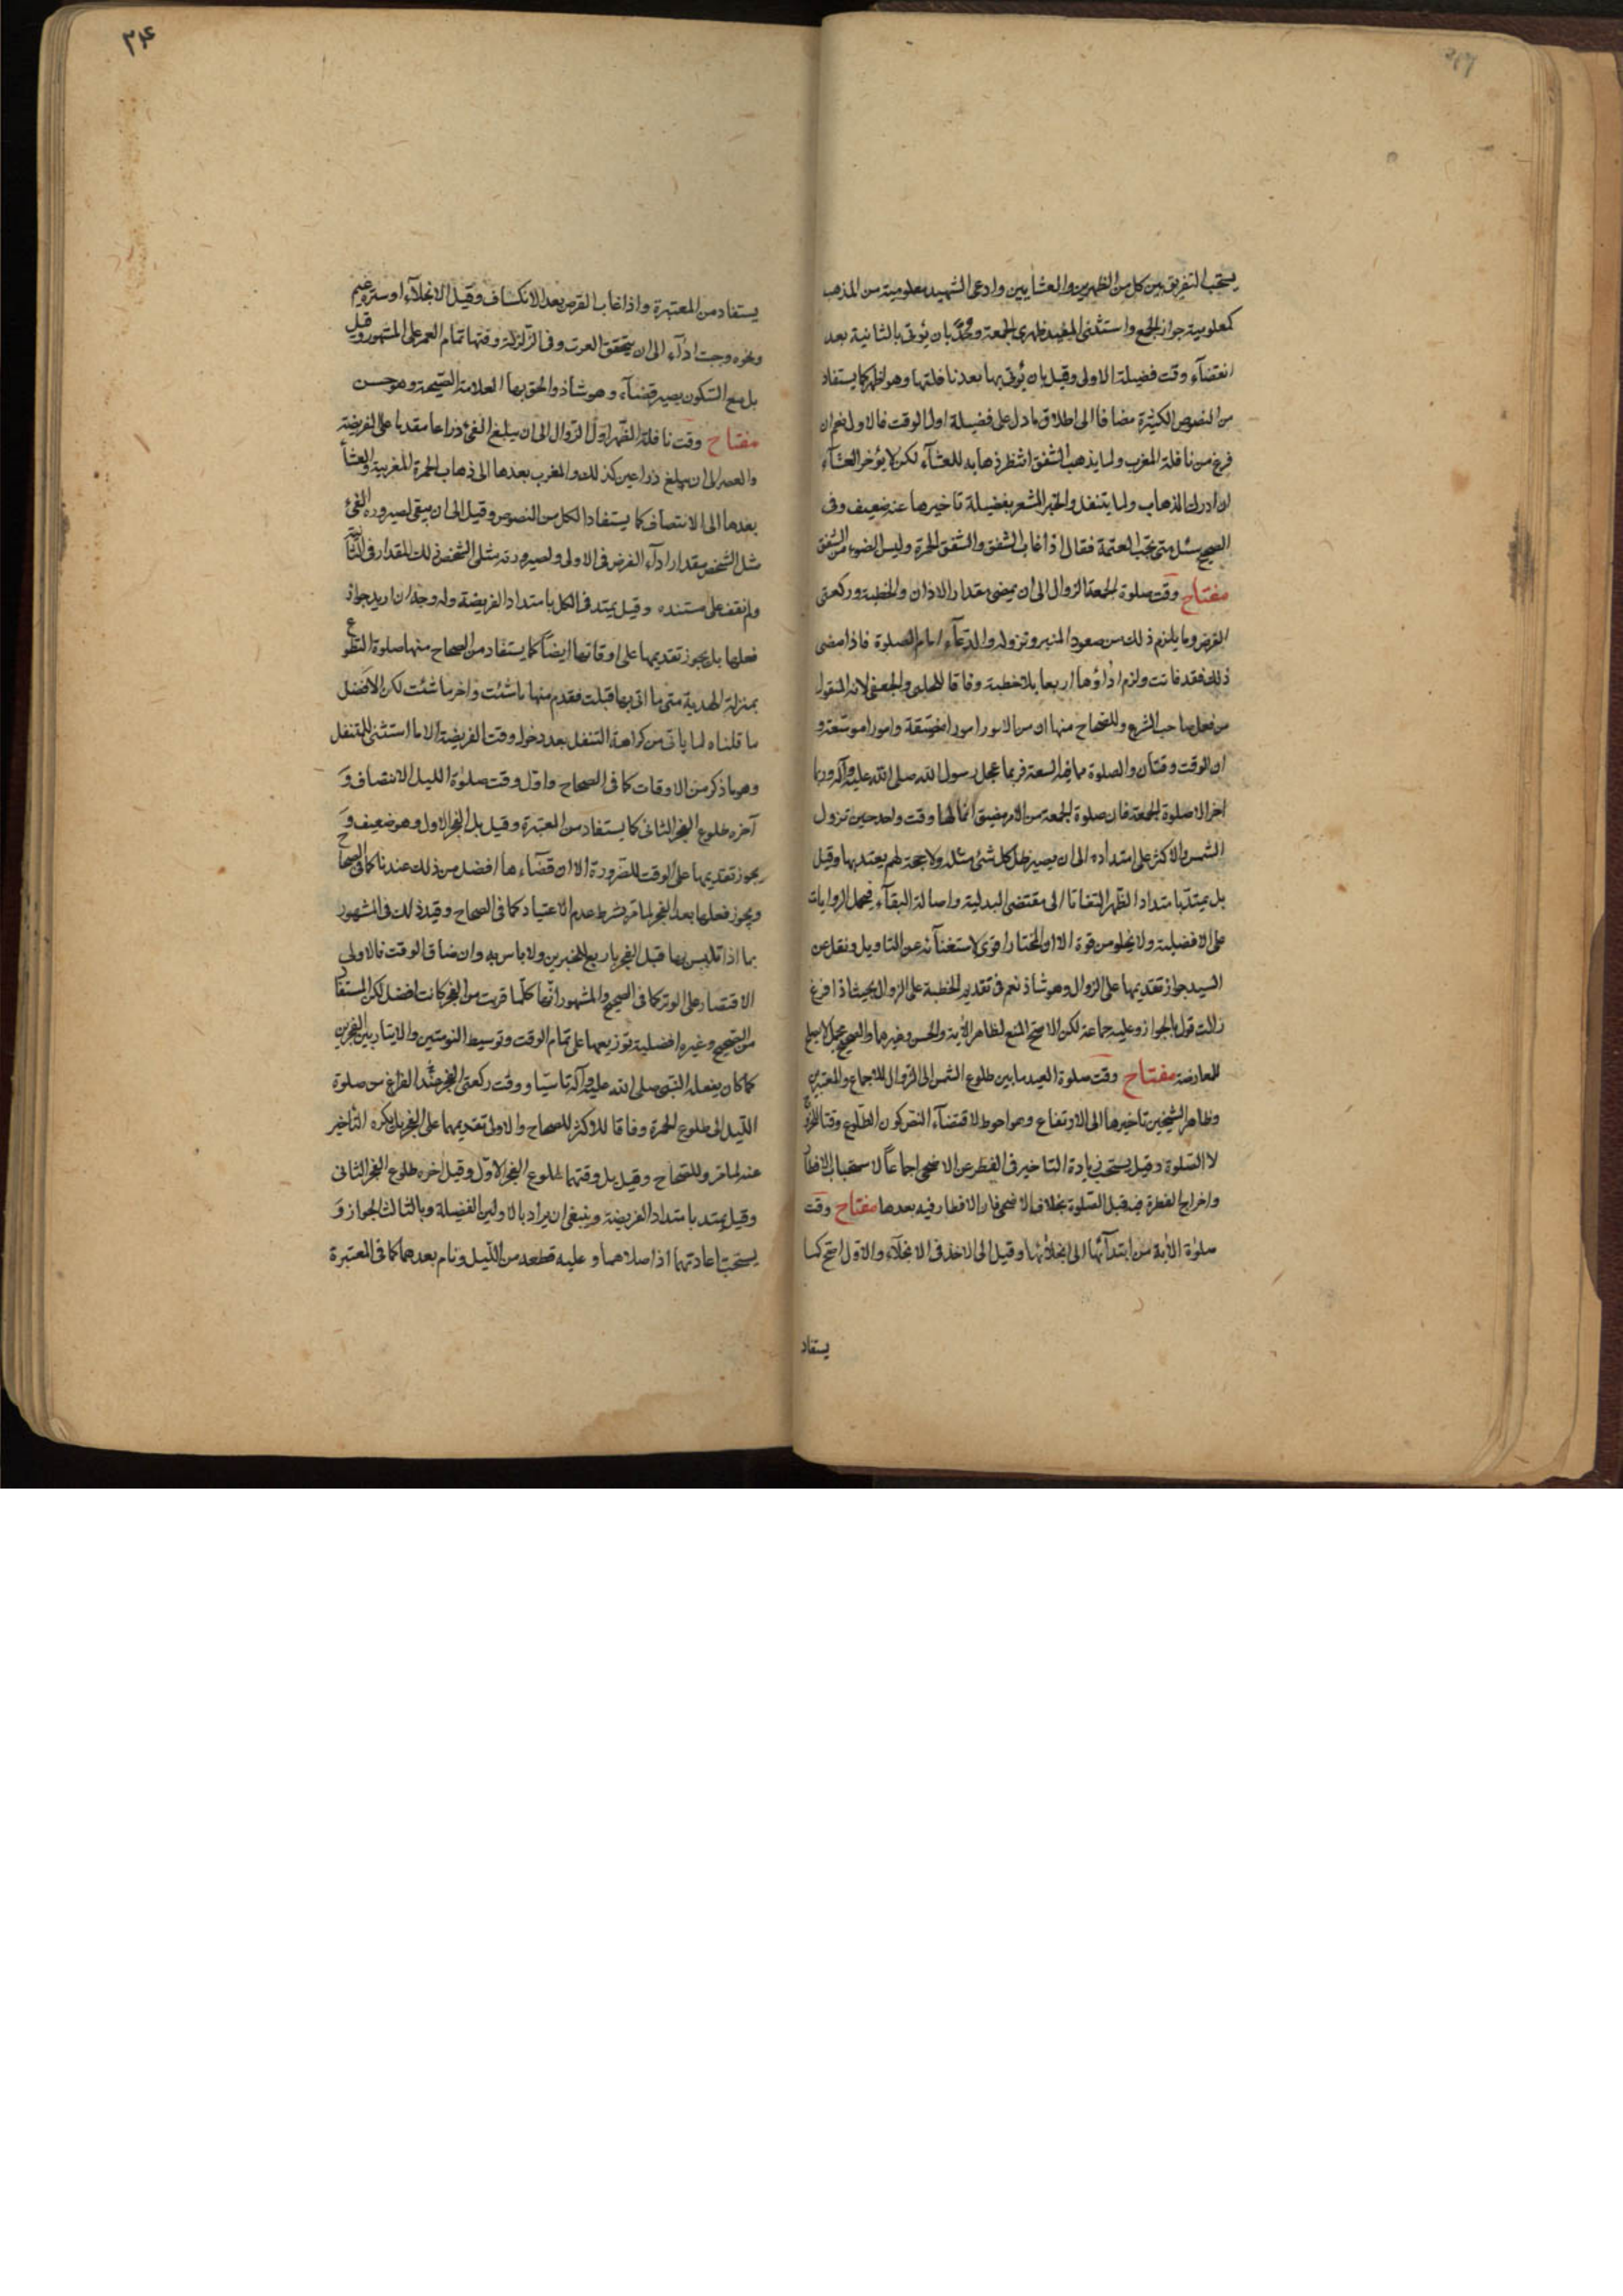 يستحب التفريق بين كل من الظهرين والعشايين وادعى الشهيد معلومية من المذهب
كمعلومية جواز الجمع واستثنى المفيد ظهرى الجمعة وحُدَّ بان يُؤتى بالثانية بعد
انقضآء وقت فضيلة الاولى وقيل بان يُؤتى بها بعد نافلتها وهو اظهر كما يستفاد
من النصوص الكثيرة مضافا الى اطلاق ما دل على فضيلة اول الوقت فالاولى نعم ان
فرغ من نافلة المغرب ولما يذهب الشفق انتظر ذهابه للعشآء لكن لا يؤخر العشآء
ان ادرك الذهاب ولما يتنفل والخبر المشعر بفضيلة تاخيرها عنه ضعيف وفى
الصحيح سئل متى تجب العتمة فقال اذا غاب الشفق والشفق الحمرة وليس الضوء من الشفق
مفتاح وقت صلوة الجمعة الزوال الى ان يمضى مقدار الاذان والخطبة وركعتى
الفرض وما يلزم ذلك من صعود المنبر ونزوله والدعآء امام الصلوة فاذا مضى
ذلك فقد فاتت ولزم اداؤها اربعا بلا خطبة وفاقا للحلبى والجعفى لانه المنقول
من فعل صاحب الشرع وللصحاح منها ان من الامور امورا مضيقة وامورا موسعة و
ان الوقت وقتان والصلوة مما فيه السعة فربما عجل رسول الله صلى الله عليه وآله وربما
اخر الا صلوة الجمعة فان صلوة الجمعة من الامر مضيق انما لها وقت واحد حين تزول
الشمس والاكثر على امتداده الى ان يصير ظل كل شئ مثله ولا حجة لهم يعتد بها وقيل
بل يمتد بامتداد الظهر التفاتا الى مقتضى البدلية واصالة البقآء فيحمل الروايات
على الافضلية ولا يخلو من قوة الا ان المختار اقوى لاستغنآئه عن التاويل ونقل عن
السيد جواز تقديمها على الزوال وهو شاذ نعم فى تقديم الخطبة على الزوال بحيث اذا فرغ
زالت قول بالجواز وعليه جماعة لكن الاصح المنع لظاهر الآية والحسن وغيرهما والصحيح مجمل لا يصلح
للمعارضة مفتاح وقت صلوة العيد ما بين طلوع الشمس الى الزوال للاجماع والمعتبرين
وظاهر الشيخين تاخيرها الى الارتفاع وهو احوط لاقتضآء النص كون الطلوع وقتا للخروج
لا الصلوة وقيل يستحب زيادة التاخير فى الفطر عن الاضحى اجماعاً لاستحباب الافطار
واخراج الفطرة فيه قبل الصلوة بخلاف الاضحى فان الافطار فيه بعدها مفتاح وقت
صلوة الآية من ابتدآئها الى انجلائها وقيل الى الاخذ فى الانجلآء والاول اصح كما
يستفاد
٣۴
يستفاد من المعتبرة واذا غاب القرص بعد الانكساف وقيل الانجلآء او ستره غيم
ونحوه وجبت ادآء الى ان يتحقق العرف وفى الزلزلة وقتها تمام العمر على المشهور وقيل
بل مع السكون يصير قضآء وهو شاذ والحق بها العلامة الصيحة وهو حسن
مفتاح وقت نافلة الظهر اول الزوال الى ان يبلغ الفئ ذراعا مقدما على الفريضة
والعصر الى ان يبلغ ذراعين كذلك والمغرب بعدها الى ذهاب الحمرة المغربية والعشآ
بعدها الى الانتصاف كما يستفاد الكل من النصوص وقيل الى ان يبقى لصيرورة الفئ
مثل الشخص مقدار ادآء الفرض فى الاولى ولصيرورته مثلى الشخص ذلك المقدار فى الثانية
ولم نقف على مستنده وقيل يمتد فى الكل بامتداد الفريضة وله وجه ان اريد جواز
فعلها بل يجوز تقديمها على اوقاتها ايضاً كما يستفاد من الصحاح منها صلوة التطوع
بمنزلة الهدية متى ما اتى بها قبلت فقدم منها ما شئت واخر ما شئت لكن الافضل
ما قلناه لما ياتى من كراهة التنفل بعد دخول وقت الفريضة الا ما استثنى للمتنفل
وهو ما ذكر من الاوقات كما فى الصحاح واول وقت صلوة الليل الانتصاف وَ
آخره طلوع الفجر الثانى كما يستفاد من المعتبرة وقيل بل الفجر الاول وهو ضعيف وَ
يجوز تقديمها على الوقت للضرورة الا ان قضآءها افضل من ذلك عندنا كما فى الصحاح
ويجوز فعلها بعد الفجر لما مر بشرط عدم الاعتياد كما فى الصحاح وقيد ذلك فى المشهور
بما اذا تلبس بها قبل الفجر باربع للخبرين ولا باس به وان ضاق الوقت فالاولى
الاقتصار على الوتر كما فى الصحيح والمشهور انها كلما قربت من الفجر كانت افضل لكن المستفاد
من الصحيح وغيره افضلية توزيعها على تمام الوقت وتوسيط النومتين والايتار بين الفجرين
كما كان يفعله النبى صلى الله عليه وآله تاسيا ووقت ركعتى الفجر عند الفراغ من صلوة
الليل الى طلوع الحمرة وفاقا للاكثر للصحاح والاولى تقديمهما على الفجر بل يكره التاخير
عنه لما مر وللصحاح وقيل بل وقتهما طلوع الفجر الاول وقيل اخره طلوع الفجر الثانى
وقيل يمتد بامتداد الفريضة وينبغى ان يراد بالاولين الفضيلة وبالثالث الجواز وَ
يستحب اعادتهما اذا صلاهما وعليه قطعه من الليل ونام بعدهما كما فى المعتبرة